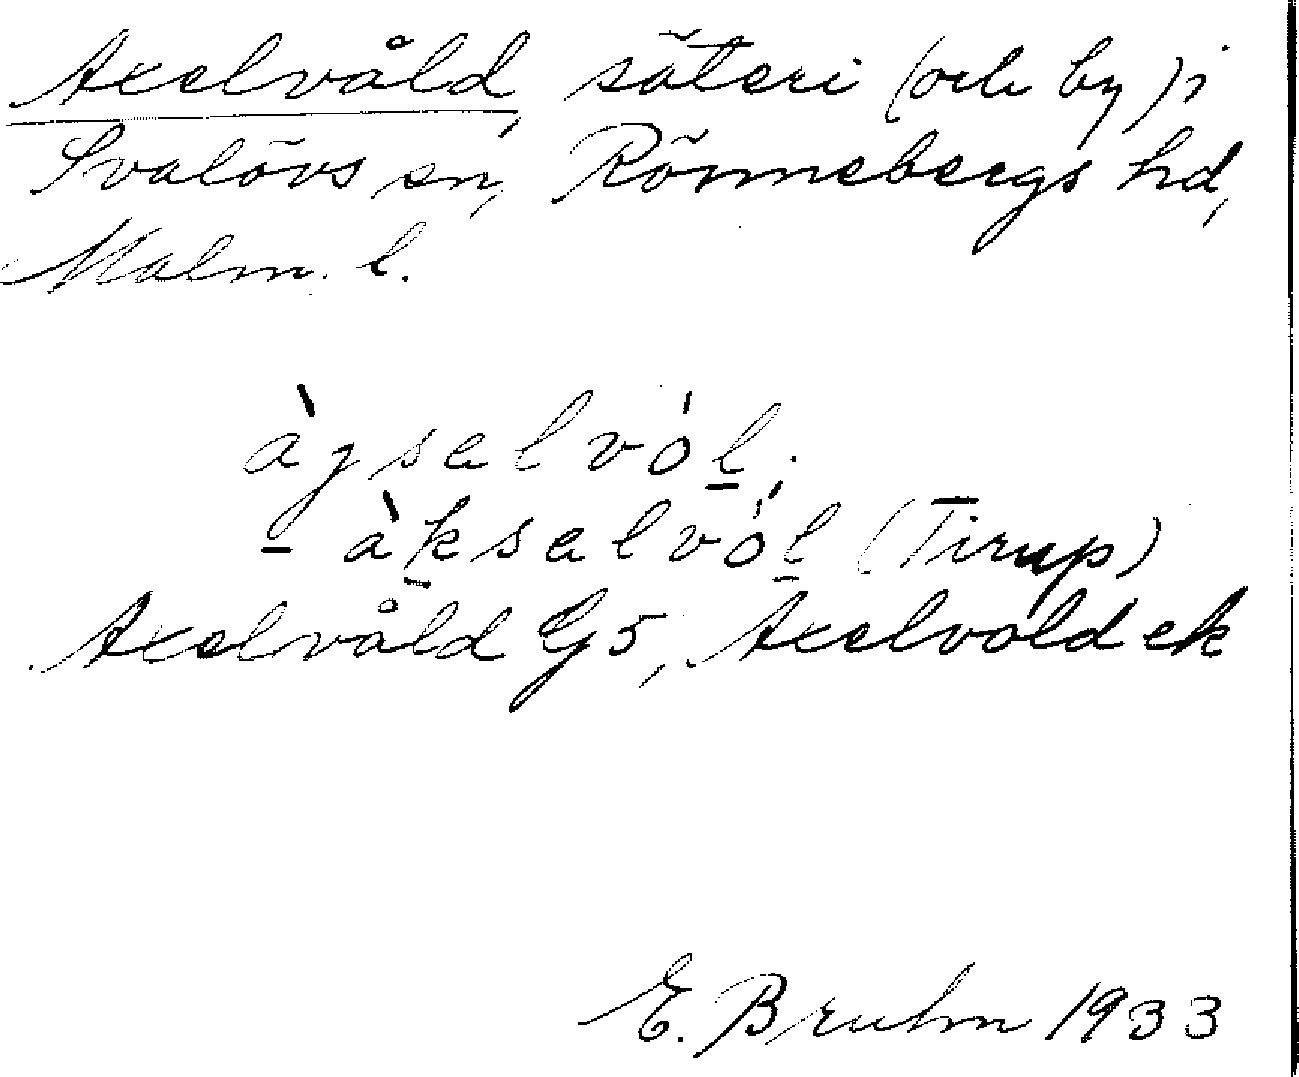 Axelvåld, säteri (och by) i
Svalövs sn, Rönnebergs hd,
Malm. l.
àgselvól,
- àkselvól (Tirup)
Axelvåld G5, Axelvold ek
E. Bruhn 1933